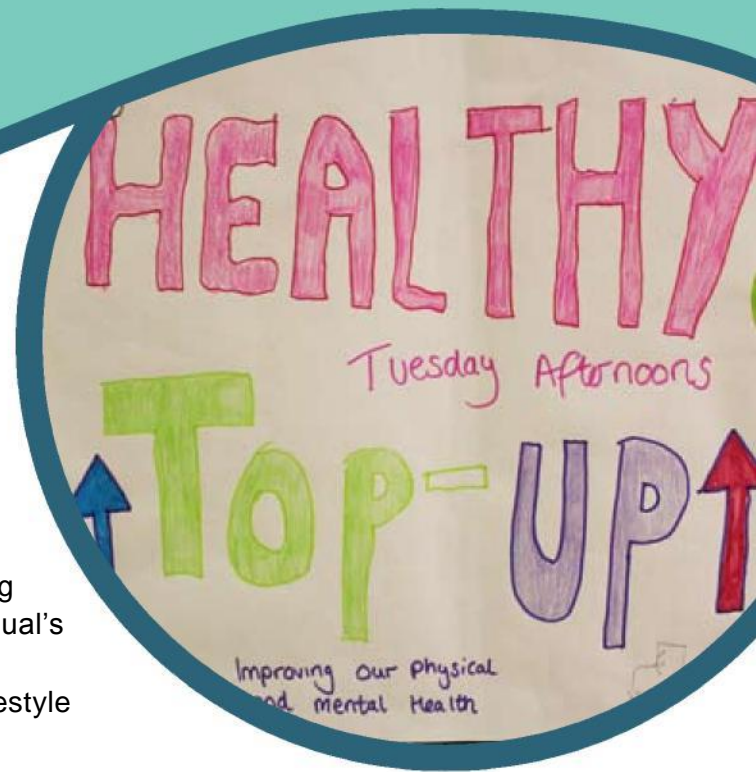 HEALTHY
Tuesday Afternoons
TOP-UP
Improving our physical
and mental Health
ual's
estyle